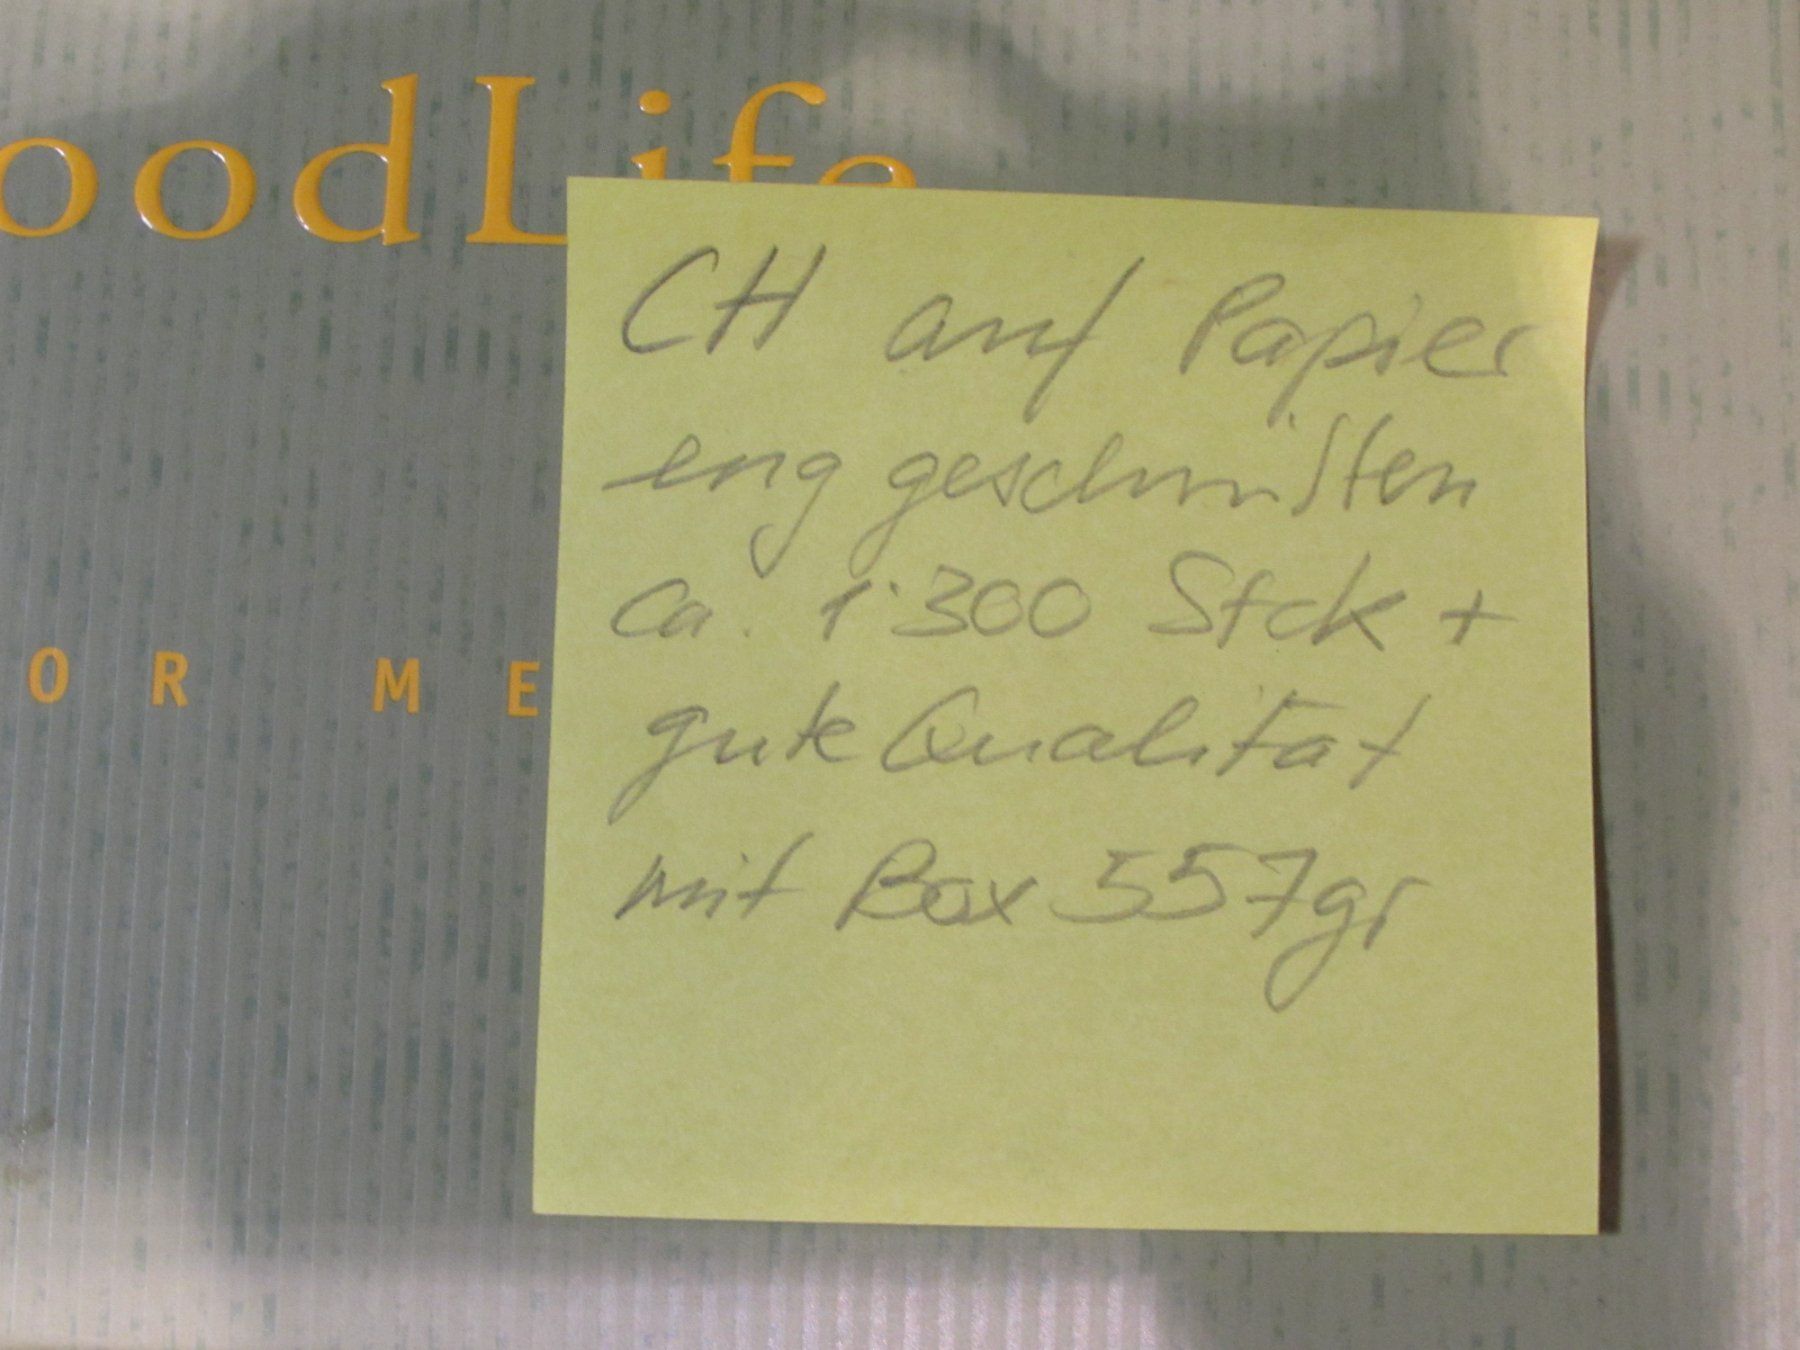 oodLife
OR ME
CH auf Papier
eng geschnitten
ca. 1'300 Stck +
gute Qualität
mit Box 557gr